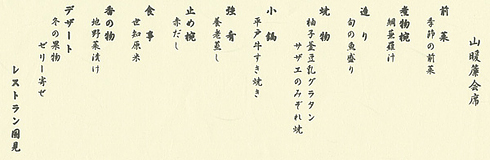 山暖簾会席
前菜
季節の前菜
煮物椀
鯛蕪羅汁
造り
旬の魚盛り
焼物
柚子釜豆乳グラタン
サザエのみぞれ焼
小鍋
平戸牛すき焼き
強肴
養老蒸し
止め椀
赤だし
食事
世知原米
香の物
地野菜漬け
デザート
冬の果物
ゼリー寄せ
レストラン国見